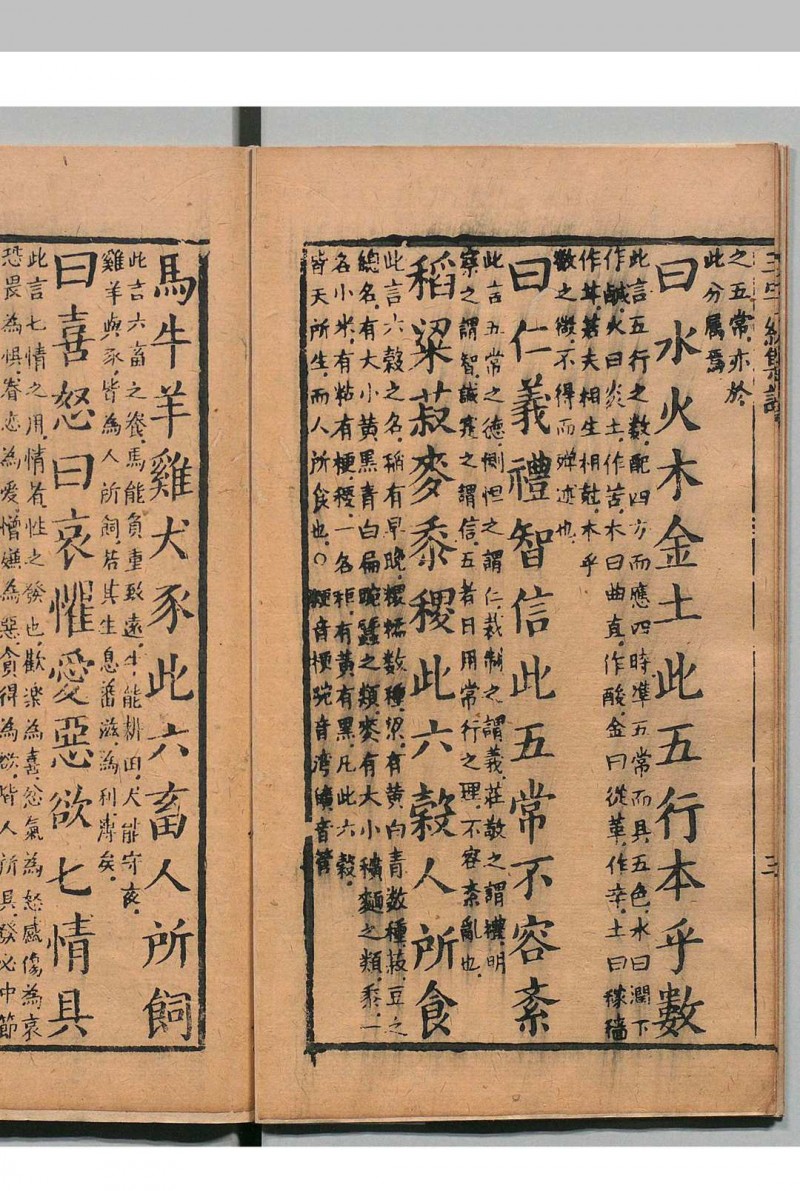 之五常亦於
此分屬焉
曰水火木金土此五行本乎數
此言五行之數配四方而應四時準五常而具五色水曰潤下
作鹹火曰炎上作苦木曰曲直作酸金曰從革作辛土曰稼穡
作甘若夫相生相尅本乎
數之微不得而殫述也
曰仁義禮智信此五常不容紊
此言五常之德惻怛之謂仁裁制之謂義莊敬之謂禮明
察之謂智誠寔之謂信五者日用常行之理不容紊亂也
稻粱菽麥黍稷此六穀人所食
此言六穀之名稻有早晚粳糯數種粱有黃白青數種菽豆之
總名有大小黃黑青白扁豌蠶之類麥有大小穬麵之類黍一
名小米有粘有梗稷一名秬有黃有黑凡此六穀
皆天所生而人所食也○粳音梗豌音灣
馬牛羊雞犬豕此六畜人所飼
此言六畜之養馬能負重致遠牛能耕田犬能守夜
雞羊與豕皆為人所飼若其生息蕃滋為利溥矣
曰喜怒曰哀懼愛惡欲七情具
此言七情之用情者性之發也歡樂為喜忿氣為怒感傷為哀
恐畏為懼眷恋為愛憎嫌為惡貪得為慾皆人所具發必中節